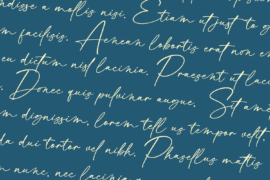 ndisse a mollis nisi. Etiam at justo g
m facilisis. Aenean lobortis erat non e
eu dictum nisl lacinia. Praesent ut lace
. Donec quis pulvinar augue. Sit am
m dignissim, lorem tell us tempor velit,
da dui tortor vel nibh. Phasellus mattis
m nunc, nec lacinia